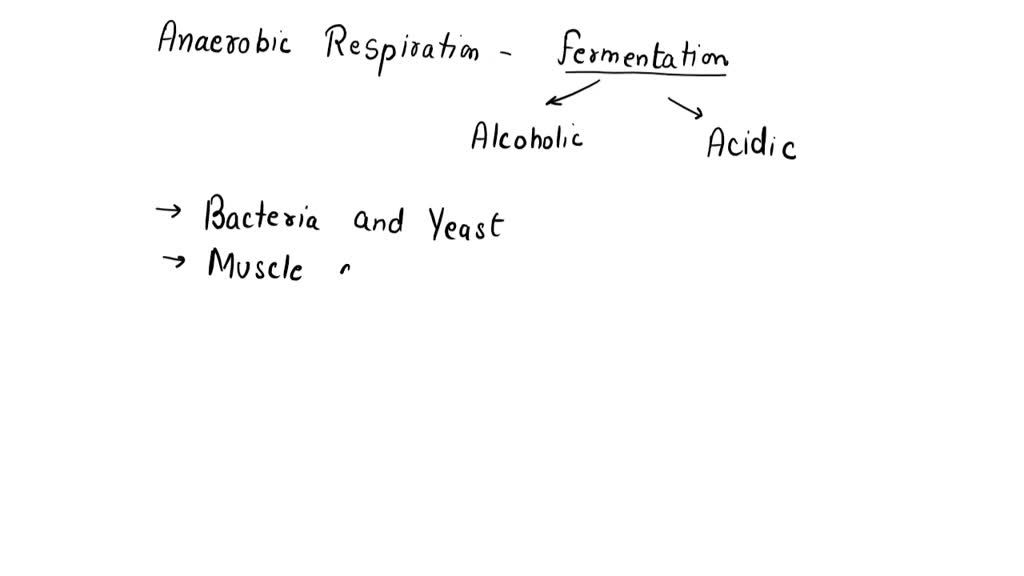 Anaerobic Respiration - Fermentation
Alcoholic Acidic
→ Bacteria and Yeast
→ Muscle